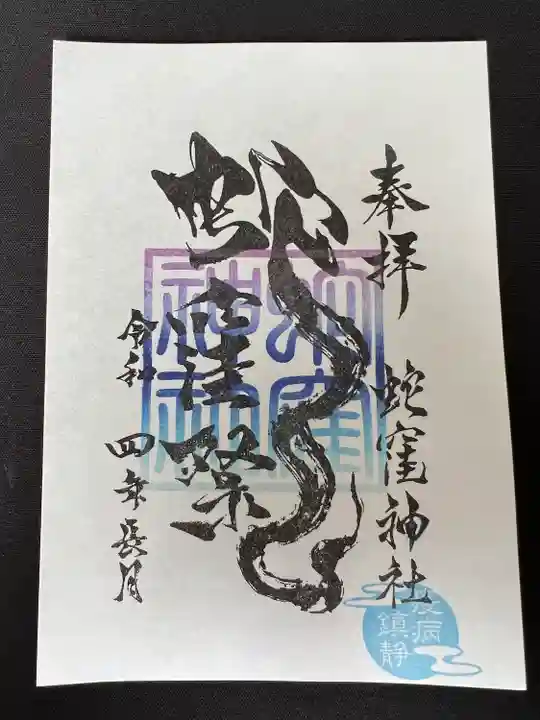 奉拝
蛇窪神社
蛇窪祭
令和
四年長月
蛇窪神社
疫病
鎮静